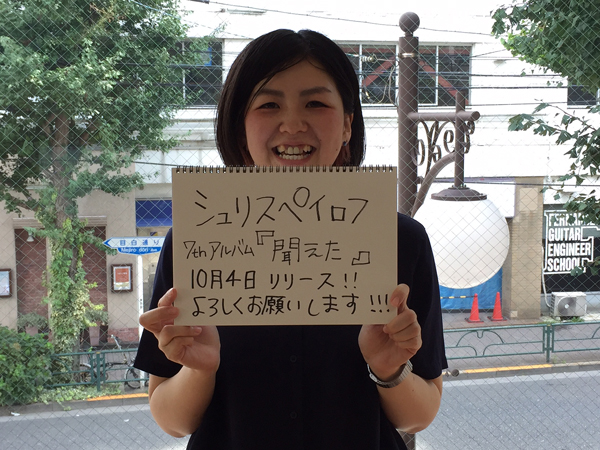 シュリスペイロフ
7thアルバム『聞えた』
10月4日 リリース!!
よろしくお願いします!!!
目白通り
Mejiro-dori
GUITAR
ENGINEER
SCHOOL